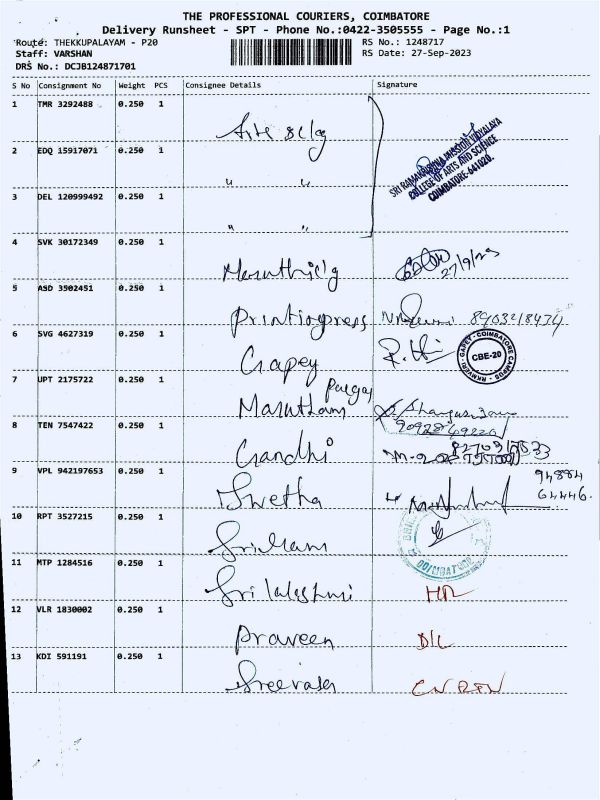 THE PROFESSIONAL COURIERS, COIMBATORE
Delivery Runsheet - SPT - Phone No.:0422-3505555 - Page No.:1
Route: THEKKUPALAYAM - P20
RS No.: 1248717
Staff: VARSHAN
RS Date: 27-Sep-2023
DRS No.: DCJB124871701
S No Consignment No Weight PCS Consignee Details Signature
1 TMR 3292488 0.250 1
SRI RAMAKRISHNA MISSION VIDYALAYA
COLLEGE OF ARTS AND SCIENCE
COIMBATORE-641020.
2 EDQ 15917071 0.250 1 " "
3 DEL 120999492 0.250 1 " "
4 SVK 30172349 0.250 1 27/9/23
5 ASD 3502451 0.250 1 Printingpress 8903218434
6 SVG 4627319 0.250 1 Gapey
COIMBATORE CAMPUS
CBE-20
7 UPT 2175722 0.250 1 Marutham
8 TEN 7547422 0.250 1 Gandhi
9 VPL 942197653 0.250 1 Swetha 94884
64446.
10 RPT 3527215 0.250 1 Sri Mani
COIMBATORE
11 MTP 1284516 0.250 1 Sri lakshmi
12 VLR 1830002 0.250 1 Praveen D/L
13 KDI 591191 0.250 1